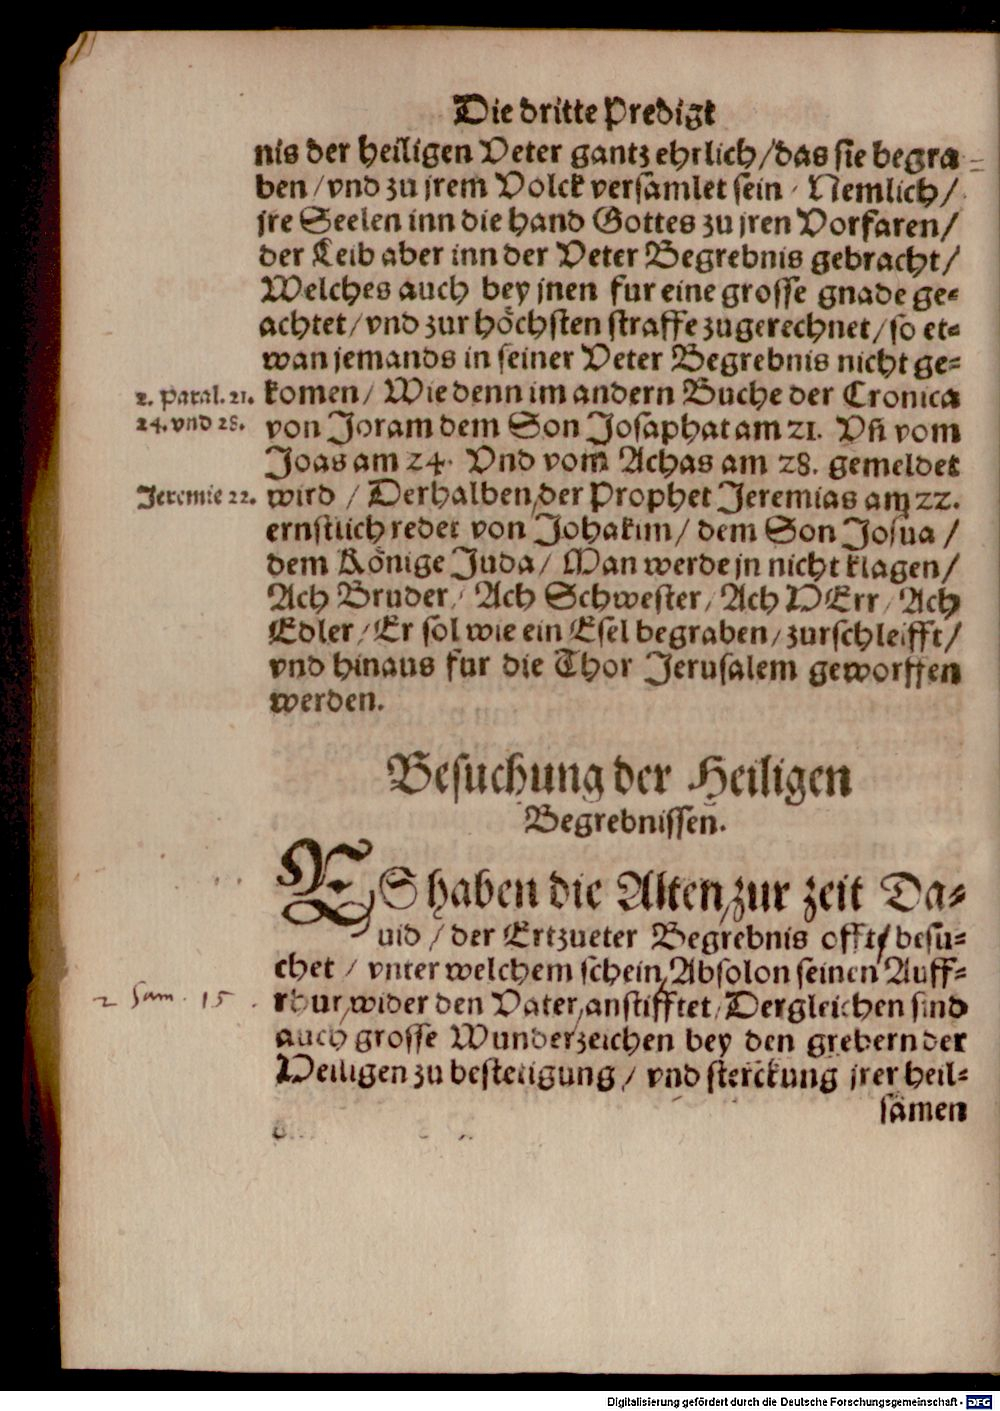 Die dritte Predigt
nis der heiligen Veter gantz ehrlich/das sie begra
ben/vnd zu jrem Volck versamlet sein/Nemlich/
jre Seelen inn die hand Gottes zu jren Vorfaren/
der Leib aber inn der Veter Begrebnis gebracht/
Welches auch bey jnen fur eine grosse gnade ge-
achtet/vnd zur höchsten straffe zugerechnet/so et-
wan jemands in seiner Veter Begrebnis nicht ge-
2. Paral. 21. komen/Wie denn im andern Buche der Cronica
24. vnd 28. von Joram dem Son Josaphat am 21. Vñ vom
Joas am 24. Vnd vom Achas am 28. gemeldet
Jeremie 22. wird/Derhalben/der Prophet Jeremias am 22.
ernstlich redet von Johakim/dem Son Josua/
dem Könige Juda/Man werde jn nicht klagen/
Ach Bruder/Ach Schwester/Ach HErr/Ach
Edler/Er sol wie ein Esel begraben/zurschleifft/
vnd hinaus fur die Thor Jerusalem geworffen
werden.
Besuchung der Heiligen
Begrebnissen.
ES haben die Alten/zur zeit Da-
uid/der Ertzueter Begrebnis offt/besu-
chet/vnter welchem schein/Absolon seinen Auff-
2 Sam. 15. rhur/wider den Vater/anstifftet/Dergleichen sind
auch grosse Wunderzeichen bey den grebern der
Heiligen zu bestetigung/vnd sterckung jrer heil-
samen
Digitalisierung gefördert durch die Deutsche Forschungsgemeinschaft - DFG